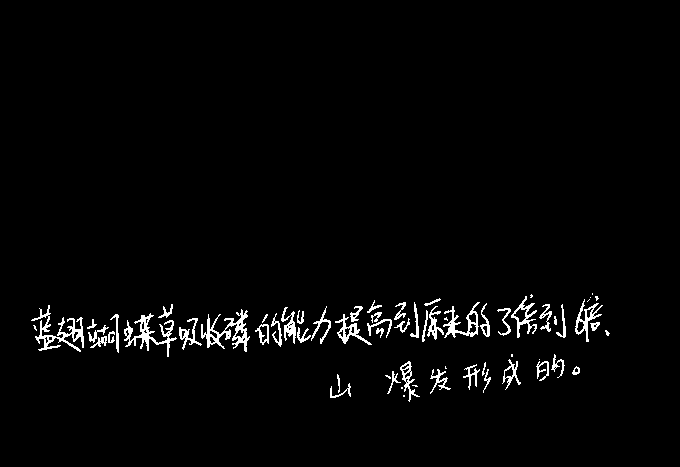 蓝翅蝴蝶草吸收磷的能力提高到原来的3倍到6倍、
山 爆发形成的。